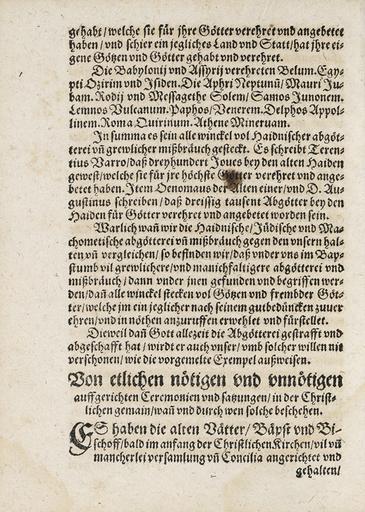 gehabt/welche sie für jhre Götter verehret vnd angebetet
haben/vnd schier ein jegliches Land vnd Statt/hat jhre ei-
gene Götzen vnd Götter gehabt vnd verehret.
Die Babylonij vnd Assyrij verehreten Belum. Egy-
pti Ozirim vnd Isiden. Die Aphri Neptunū/Mauri Ju-
bam. Rodij vnd Messagethe Solem/Samos Junonem.
Lemnos Vulcanum. Paphos/Venerem. Delphos Appol-
linem. Roma Quirinum. Athene Mineruam.
In summa es sein alle winckel vol Haidnischer abgöt-
terei vñ grewlicher mißbräuch gesteckt. Es schreibt Teren-
tius Varro/daß dreyhundert Joues bey den alten Haiden
gewest/welche sie für jre höchste Götter verehret vnd ange-
betet haben. Item Oenomaus der Alten einer/vnd D. Au-
gustinus schreiben/daß dreissig tausent Abgötter bey den
Haiden für Götter verehret vnd angebetet worden sein.
Warlich wañ wir die Haidnische/Jüdische vnd Ma-
chometische abgötterei vñ mißbräuch gegen den vnsern hal-
ten vñ vergleichen/so befinden wir/daß vnder vns im Bap-
stumb vil grewlichere/vnd manichfaltigere abgötterei vnd
mißbräuch/dann vnder jnen gefunden vnd begriffen wer-
den/dañ alle winckel stecken vol Götzen vnd frembder Göt-
ter/welche jm ein jeglicher nach seinem gutbedüncken zuuer
ehren/vnd in nöthen anzuruffen erwehlet vnd fürstellet.
Dieweil dañ Gott allezeit die Abgötterei gestrafft vnd
abgeschafft hat/wirdt er auch vnser/vmb solcher willen nit
verschonen/wie die vorgemelte Exempel außweisen.
Von etlichen nötigen vnd vnnötigen
auffgerichten Ceremonien vnd satzungen/in der Christ-
lichen gemain/wañ vnd durch wen solche beschehen.
ES haben die alten Vätter/Bäpst vnd Bi-
schoff/bald im anfang der Christlichen Kirchen/vil vñ
mancherlei versamlung vñ Concilia angerichtet vnd
gehalten/